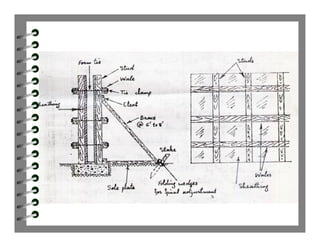 Form tie
Stud
Wale
Tie clamp
Cleat
Brace
@ 6' to 8'
Stake
Sole plate
Holding wedges
for final adjustment
Sheathing
Studs
Wales
Sheathing